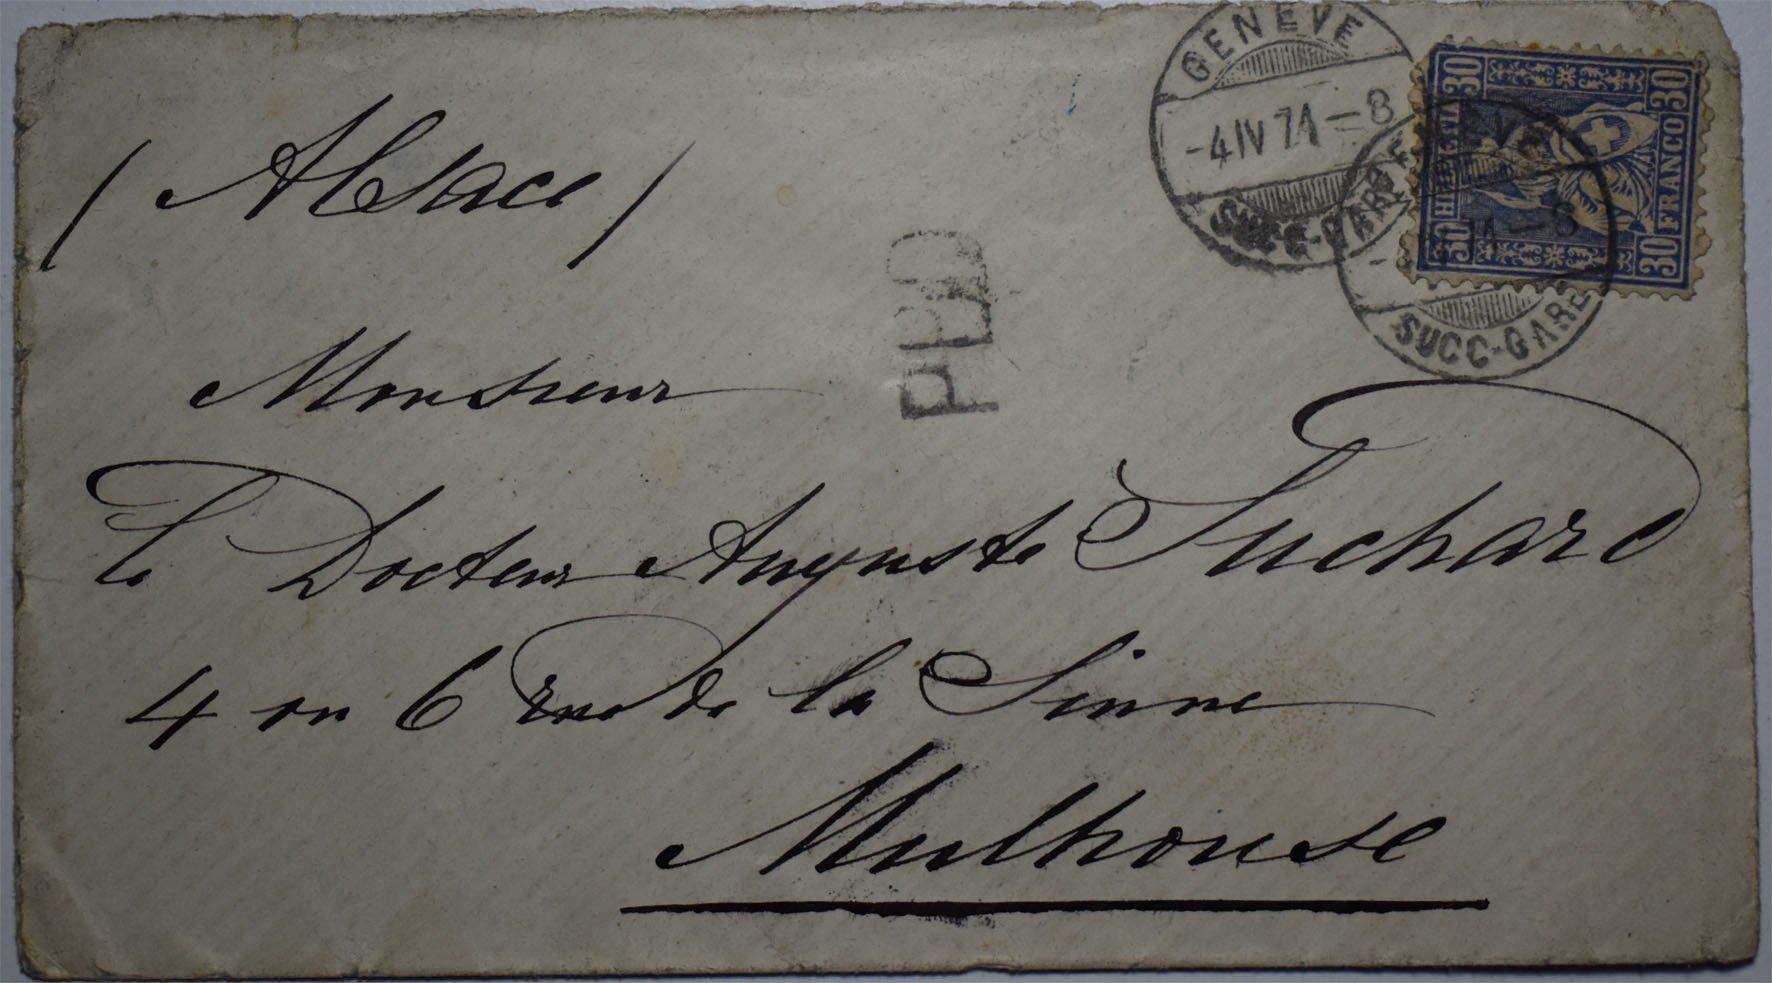 GENEVE
-4 IV 71-8
SUCC-GARE
GENEVE
71-8
SUCC-GARE
30 30
HELVETIA
FRANCO
30 30
(Alsace)
PD
Monsieur
le Docteur Auguste Suchard
4 ou 6 Rue de la Sinne
Mulhouse